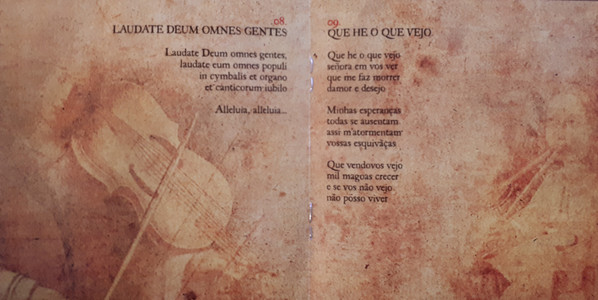 08.
LAUDATE DEUM OMNES GENTES
Laudate Deum omnes gentes,
laudate eum omnes populi
in cymbalis et organo
et canticorum iubilo
Alleluia, alleluia...
09.
QUE HE O QUE VEJO
Que he o que vejo
señora em vos ver
que me faz morrer
damor e desejo
Minhas esperanças
todas se ausentam
assi m'atormentam
vossas esquivãças
Que vendovos vejo
mil magoas crecer
e se vos não vejo
não posso viver